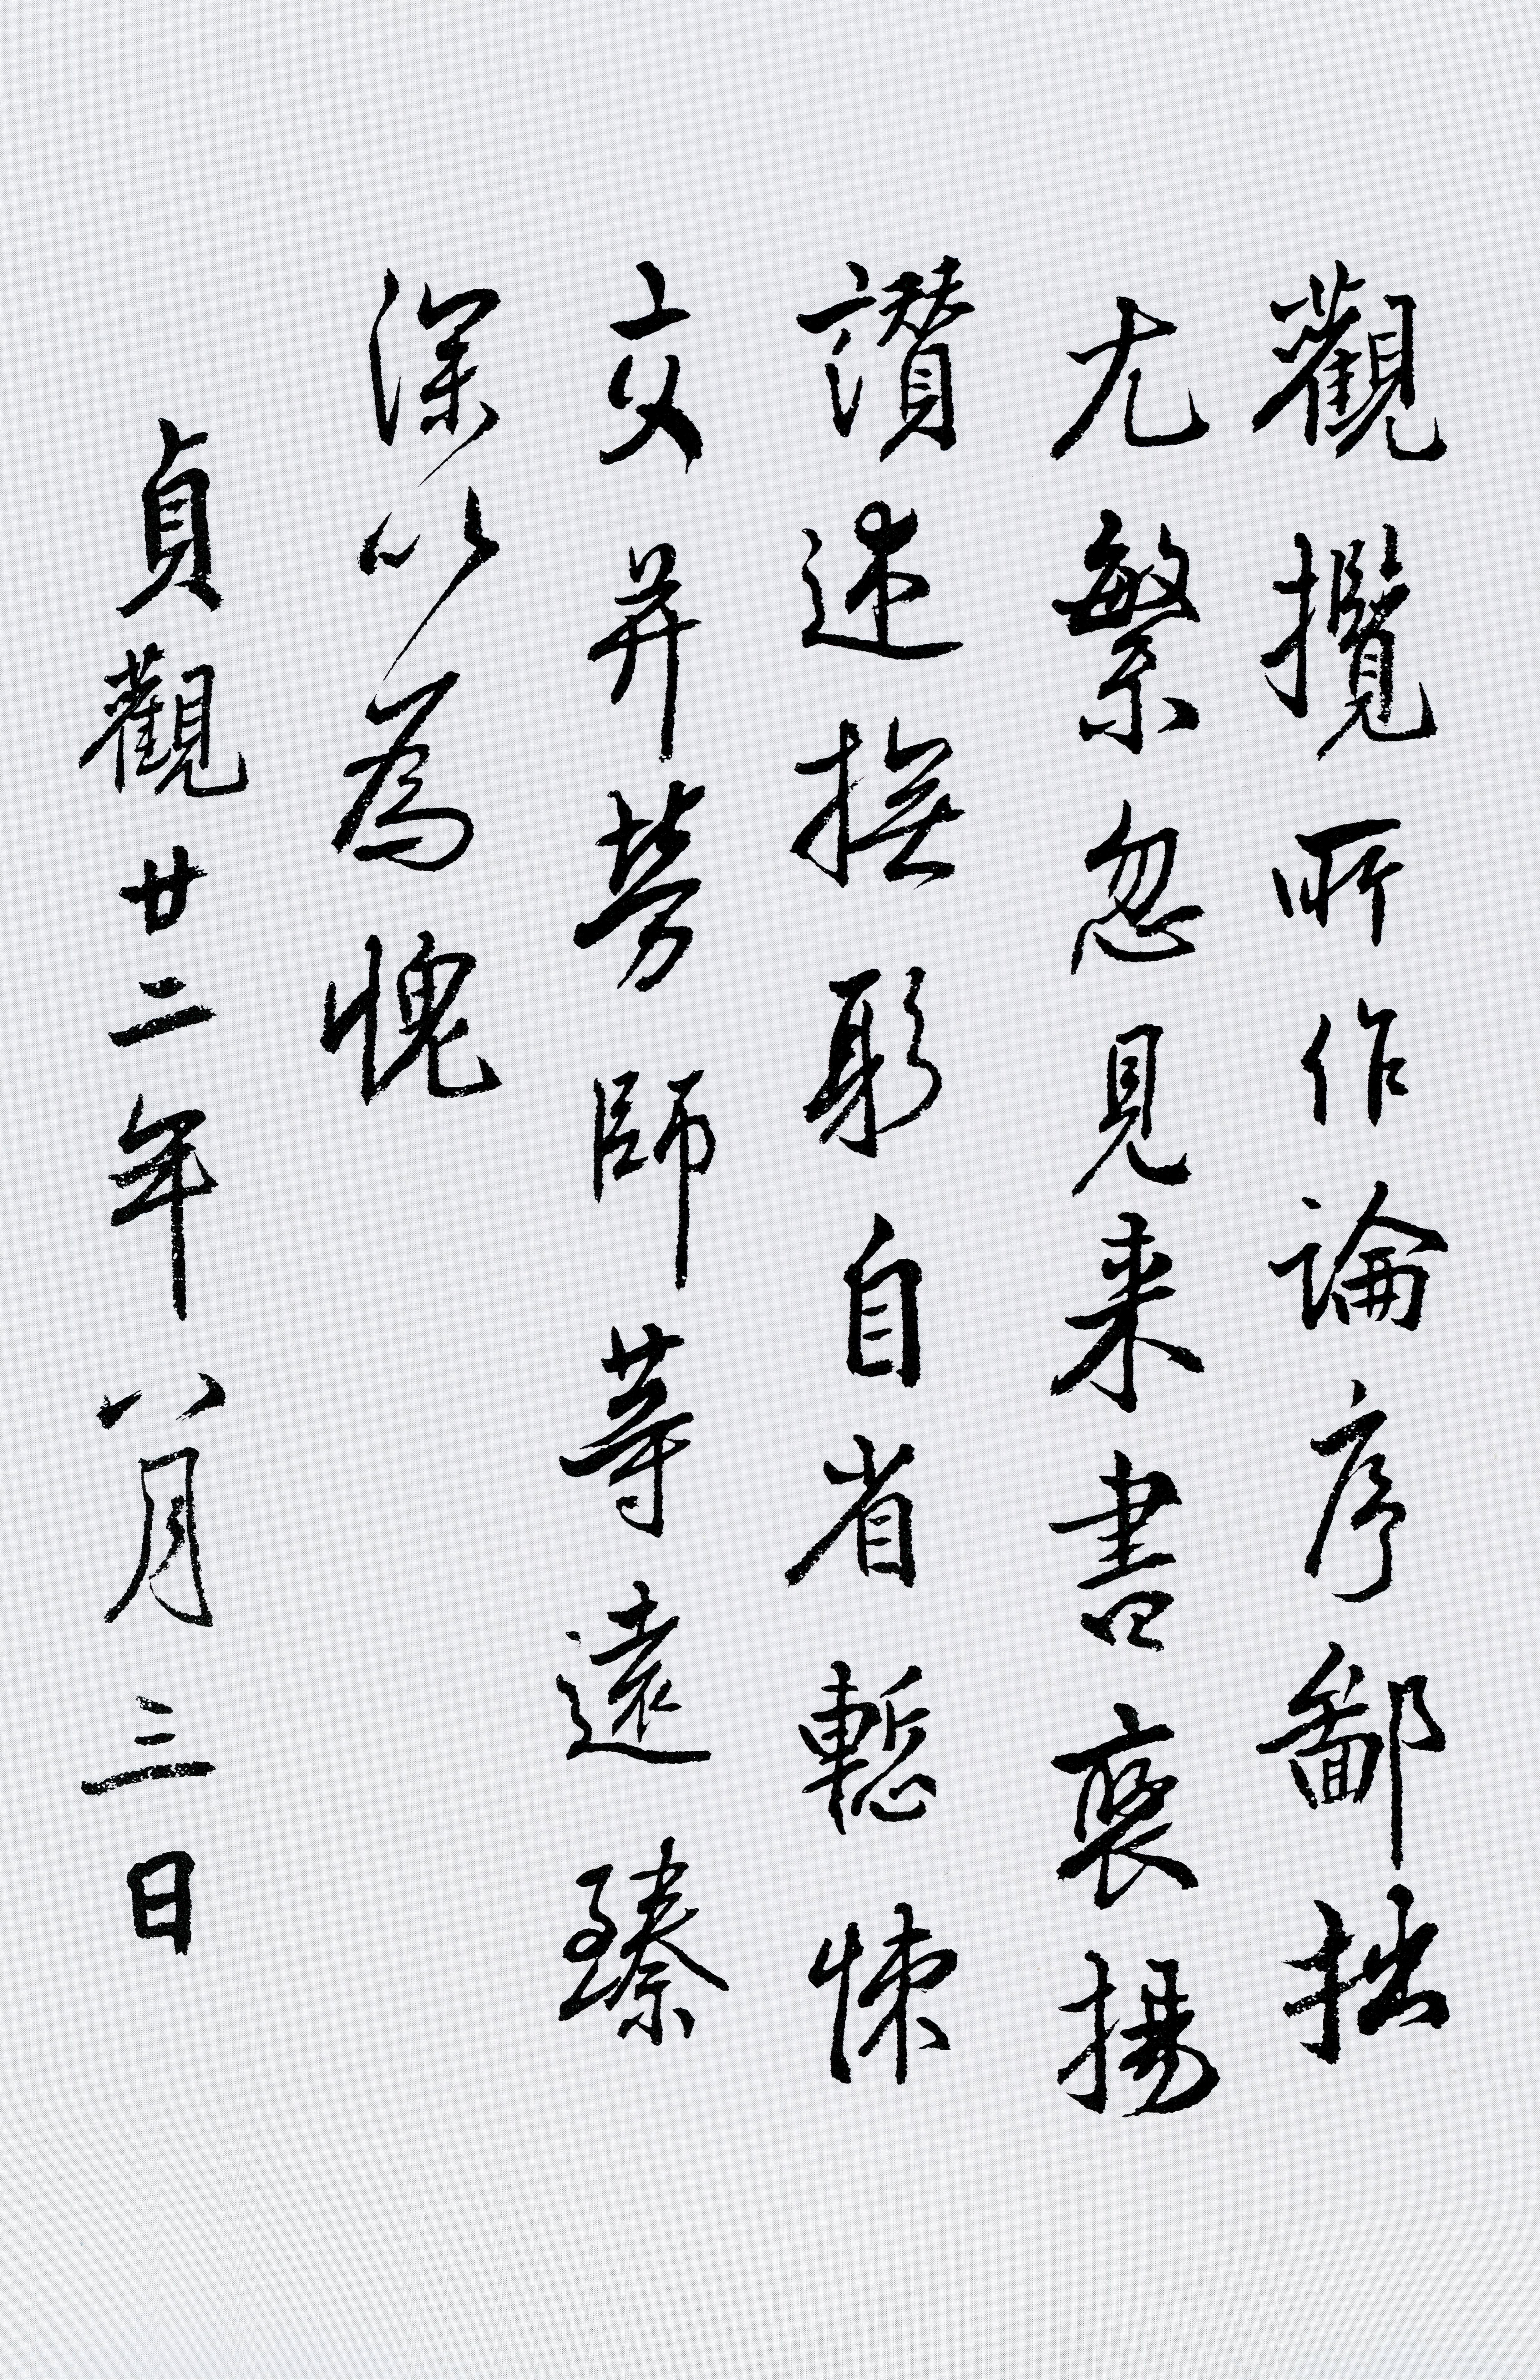 觀攬所作論序鄙拙
尤繁忽見来書褒揚
讃述撫躬自省慙悚
交并勞師等遠臻
深以為愧
貞觀廿二年八月三日